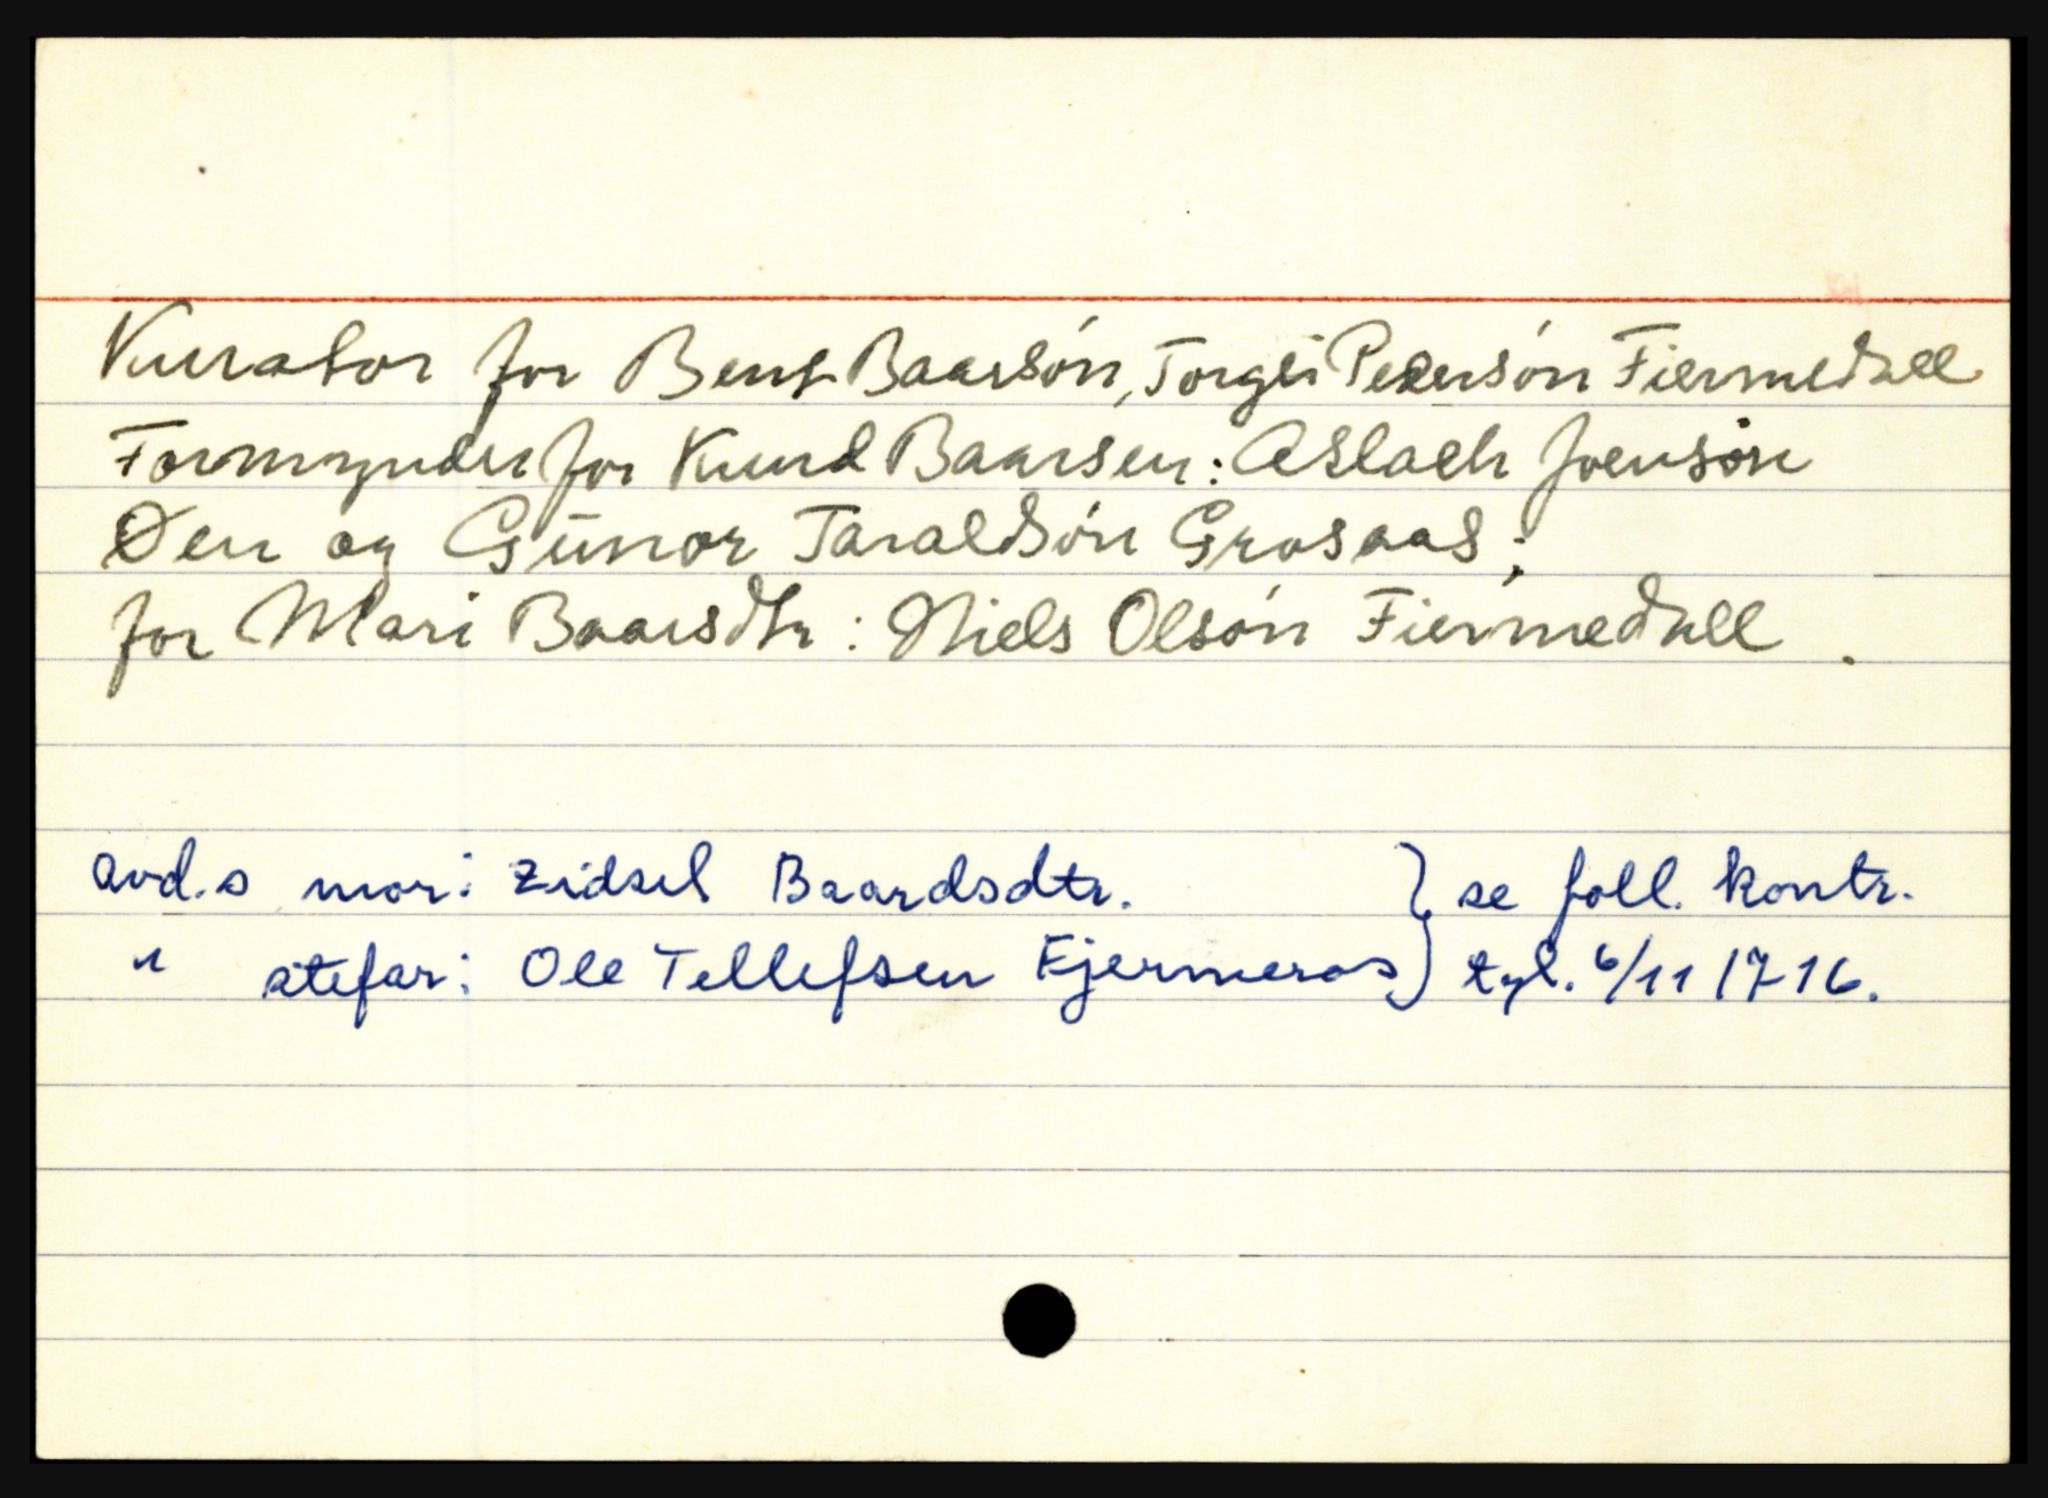 Kurator for Bent Baarsón, Torgis Pedersón Fiermedall
Formynder for Knud Baarsen: Aslach Joensön
Øen og Günor Taraldsón Grosaas;
for Mari Baarsdtr: Niels Olsón Fiermedall.
avd.s mor: Zidsel Baardsdtr. } se foll. kontr.
" stefar: Ole Tellefsen Fjermeros } tgl. 6/11 1716.